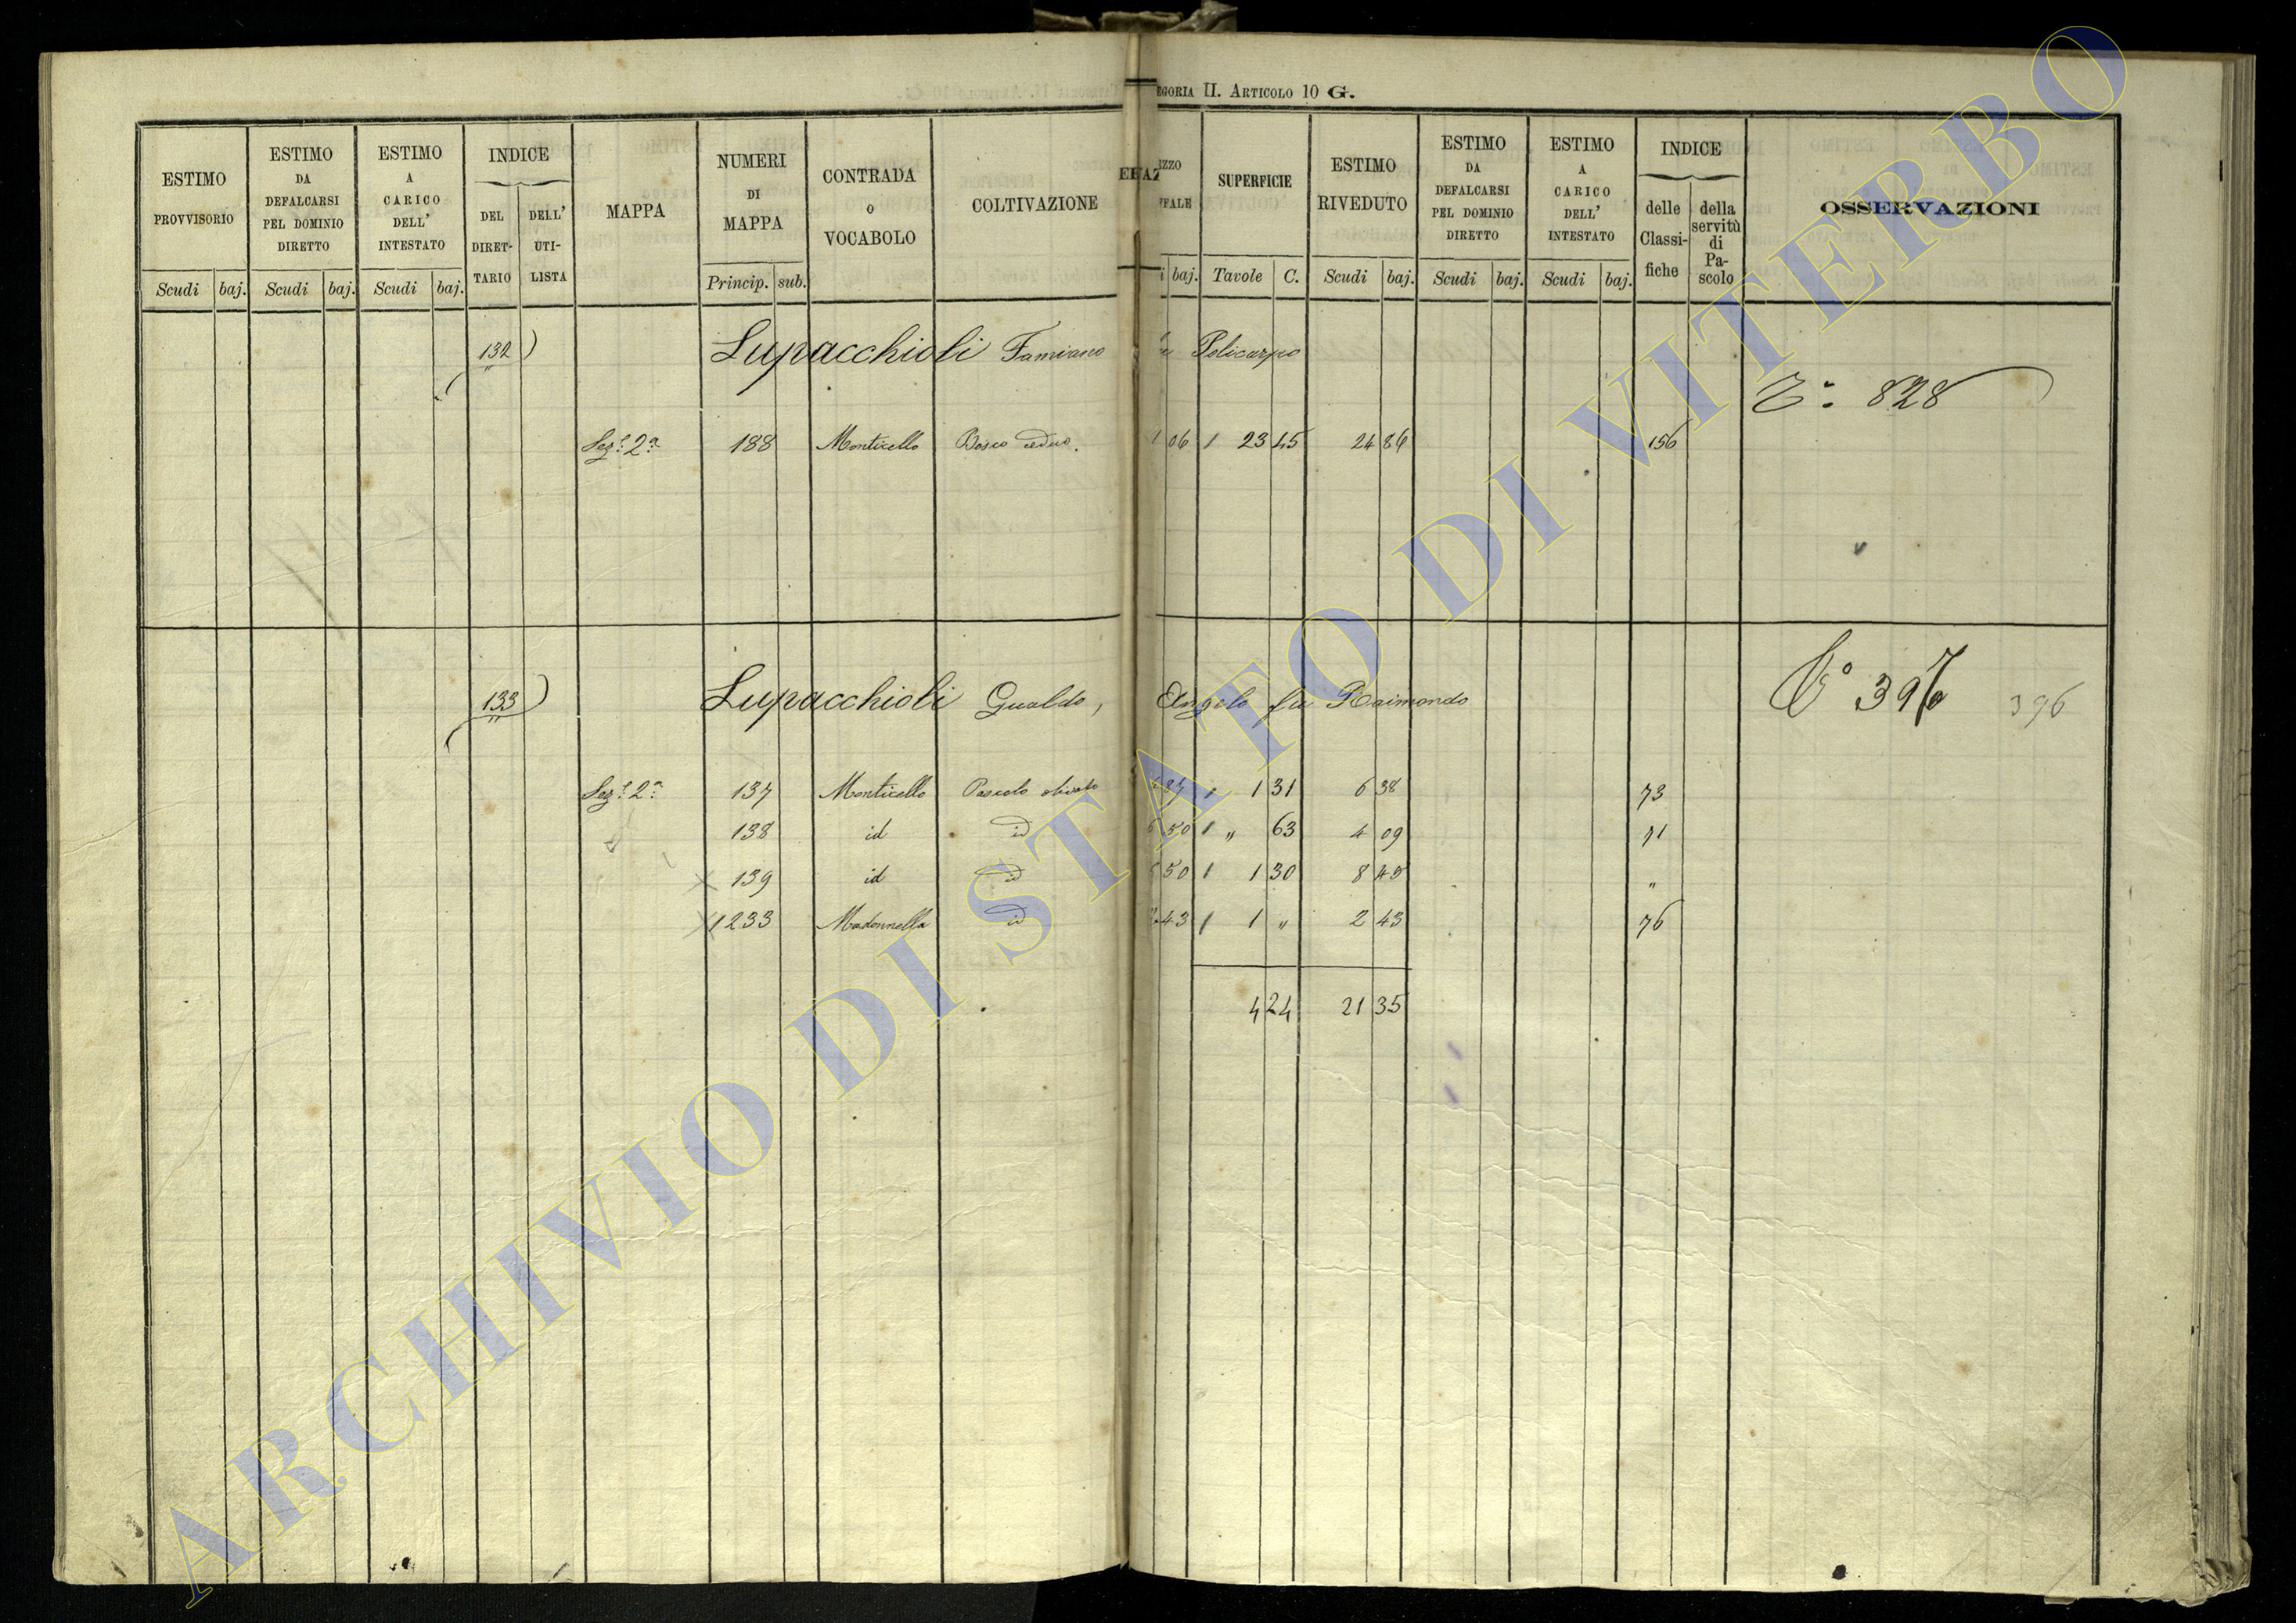 EGORIA II. ARTICOLO 10 G.
ESTIMO PROVVISORIO Scudi baj.
ESTIMO DA DEFALCARSI PEL DOMINIO DIRETTO Scudi baj.
ESTIMO A CARICO DELL' INTESTATO Scudi baj.
INDICE DEL DIRET-TARIO DELL' UTI-LISTA
MAPPA
NUMERI DI MAPPA Princip. sub.
CONTRADA O VOCABOLO
COLTIVAZIONE
EZZO FFALE i baj.
SUPERFICIE Tavole C.
ESTIMO RIVEDUTO Scudi baj.
ESTIMO DA DEFALCARSI PEL DOMINIO DIRETTO Scudi baj.
ESTIMO A CARICO DELL' INTESTATO Scudi baj.
INDICE delle Classi-fiche della servitù di Pa-scolo
OSSERVAZIONI
132 Lupacchioli Famiano Policarpo
828
Sez.e 2a 188 Monticello Bosco ceduo. 06 23 45 24 86 156
133 Lupacchioli Gualdo, Angelo fu Raimondo
396
Sez.e 2a 137 Monticello Pascolo olivato 87 1 31 6 38 73
138 id id 50 " 63 4 09 71
139 id id 50 1 30 8 45 "
1233 Madonnella id 43 1 " 2 43 76
4 24 21 35
ARCHIVIO DI STATO DI VITERBO